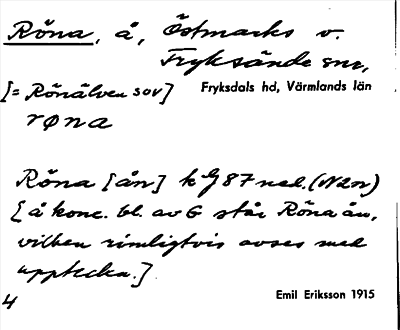 Röna, å, Östmarks o.
Fryksände snr,
[= Rönälven sov] Fryksdals hd, Värmlands län
røna
Röna [ån] k 87 ned. (N2n)
[å konc. bl. av G står Röna ån,
vilken rimligtvis avses med
uppteckn.]
4 Emil Eriksson 1915